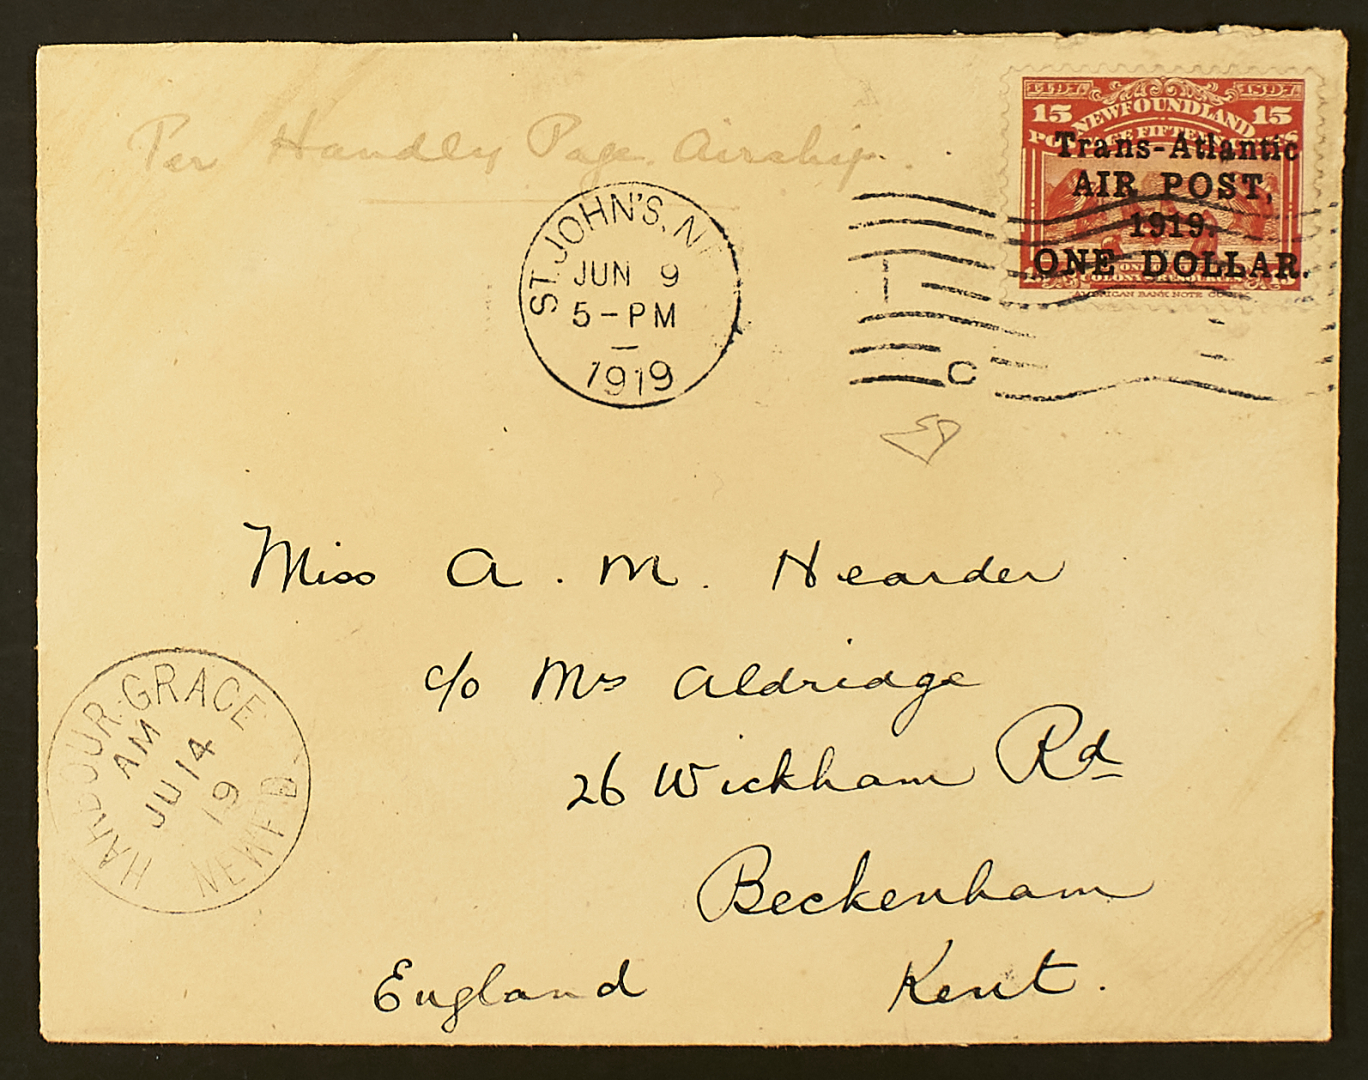 Per Handley Page Airship.
1497 1897
15 NEWFOUNDLAND 15
Trans-Atlantic
AIR POST,
1919.
ONE DOLLAR.
AMERICAN BANK NOTE CO
ST. JOHN'S, N
JUN 9
5-PM
1919
C
Miss A. M. Hearder
c/o Mrs Aldridge
26 Wickham Rd
Beckenham
England Kent.
HARBOUR GRACE
AM
JU 14
19
NEWFD